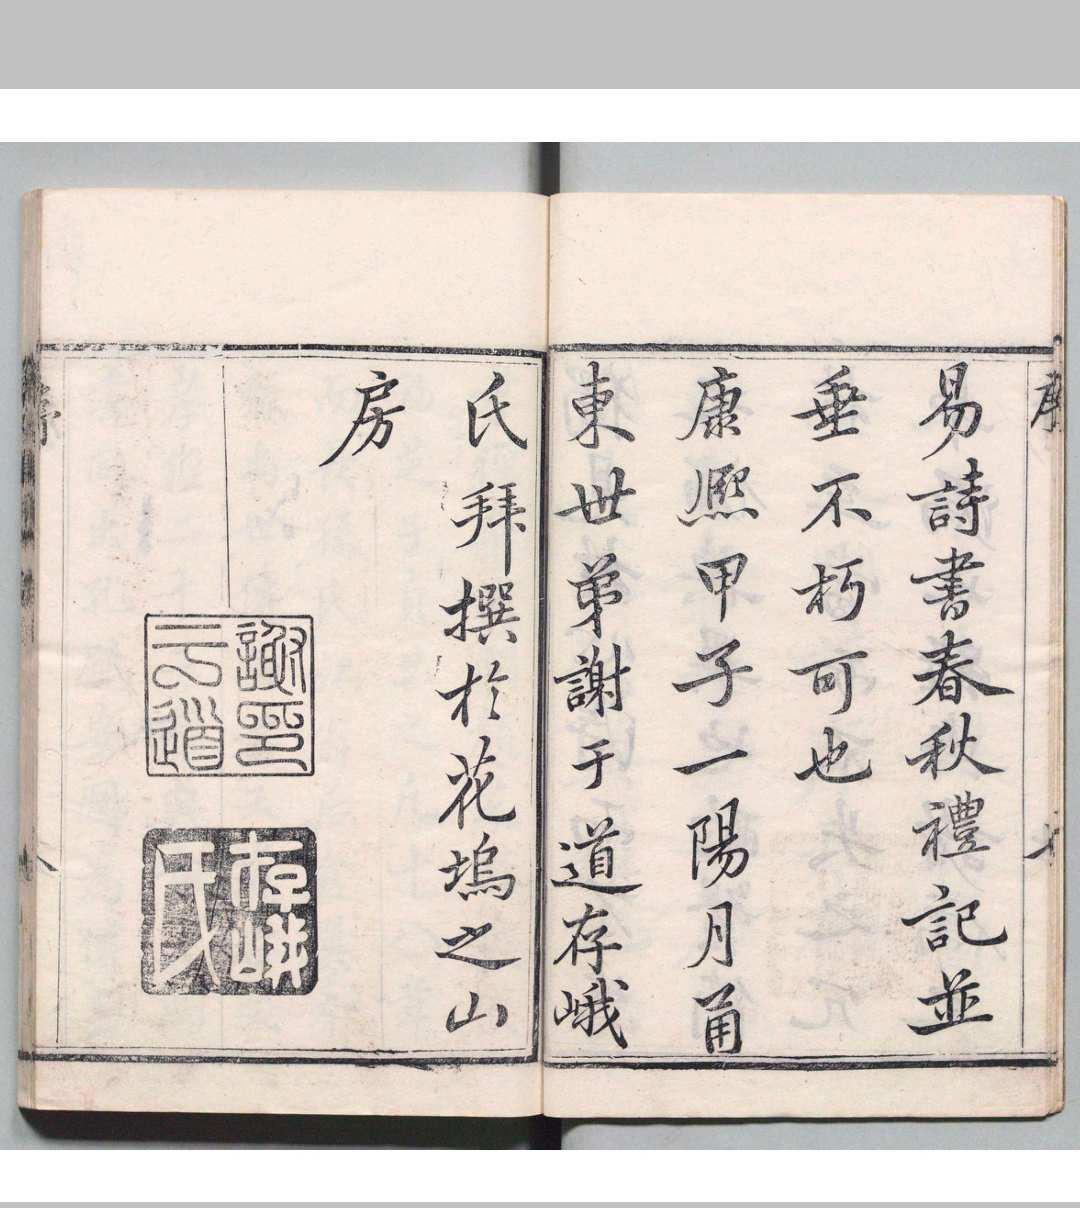 序
七
易詩書春秋禮記並
垂不朽可也
康熙甲子一陽月甬
東世弟謝于道存峨
氏拜撰於花塢之山
房
謝印
于道
存峨
氏